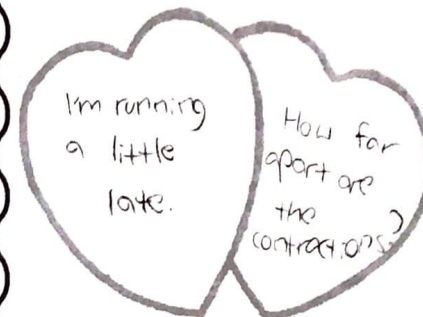 I'm running
a little
late.
How far
apart are
the
contractions?